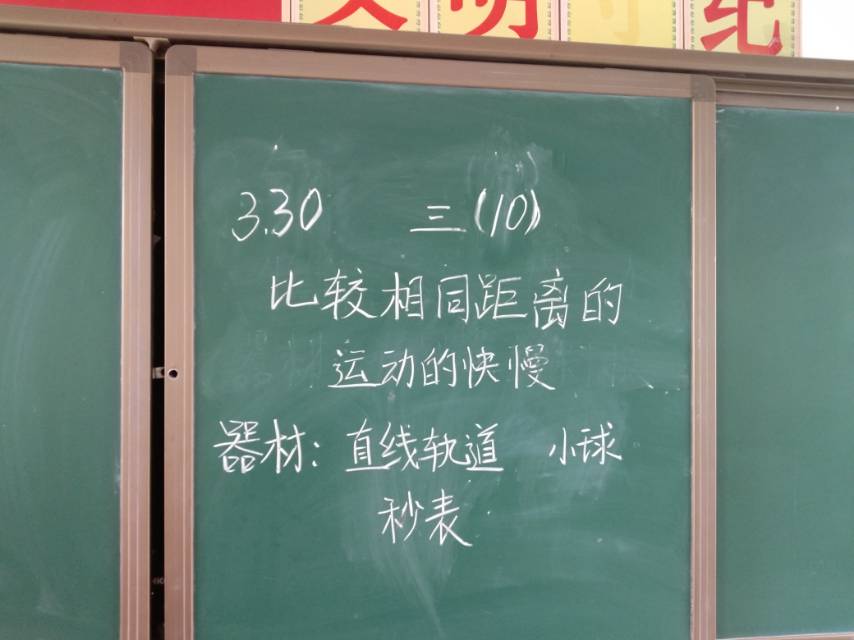 明 纪
3.30 三(10)
比较相同距离的
运动的快慢
器材：直线轨道 小球
秒表